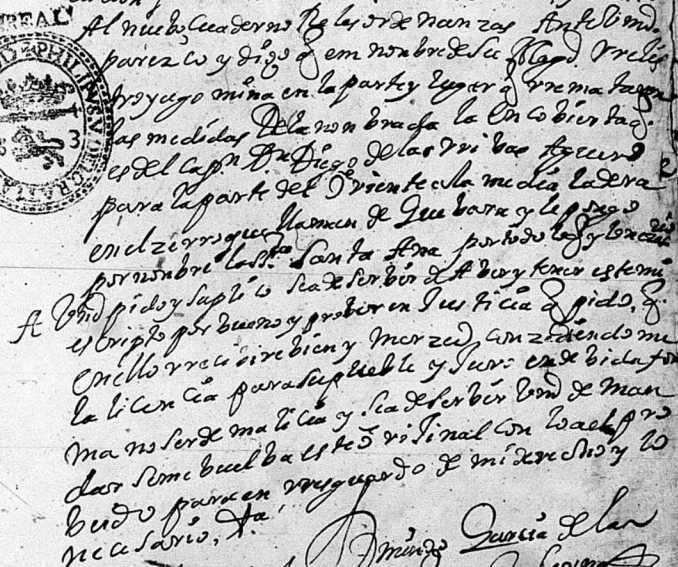 REAL
PHILIPPVS V DEI GRATIA
Al nuebo quaderno De las ordenanzas Ante Vmd.
parezco y digo q̃ em nombre de su Magd.
Mina en la parte y lugar q̃ rrematan
las medidas De la nonbrada la Encobierta q.
es del Capn. Dn. Diego de las Vribas Aguero
para la parte del Oriente a la media ladera
en el zerro que llaman de Guebara y le pongo
por nombre la Sta. Santa Ana por todo lo
A Vmd pido y suplico sea de serbir de Aber y tener este mi
escripto por bueno y prober en Justicia q̃ pido, q.
en ello rrecibire bien y Merzed conzediendo me
la licencia para su pueble y Juro en debida for
ma no ser de malicia y sea de serbir Vmd de man
dar se me buelba este orijinal con lo a el pro
beido para en rresguardo de mi derecho y lo
necesario, Etta.
Garcia de las